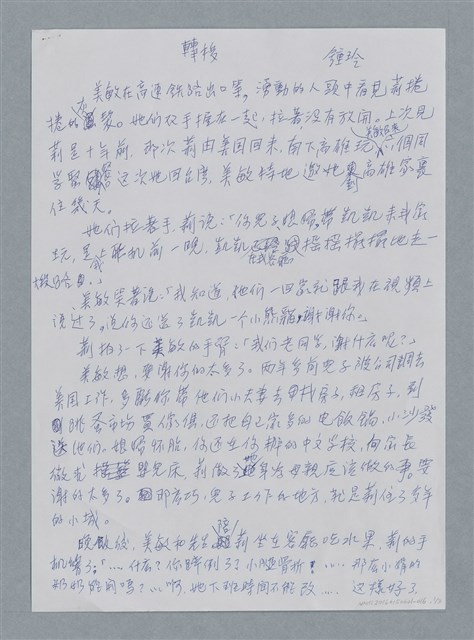 轉捩
鍾玲
美敏在高速鐵路出口等，湧動的人頭中看見莉捲
捲的大。她們双手握在一起，拉著沒有放開。上次見
莉是十年前，那次莉由美国回來，南下高雄玩，美敏召集八個同
學聚。這次她回台灣，美敏特地邀她到高雄家裏
住幾天。
她們拉著手，莉說：「你兒子、媳婦帶凱凱來我家
玩，是我上飛机前一晚，凱凱在我家搖搖擺擺地走一
步。」
美敏笑著說：「我知道，他們一回家就跟我在視頻上
說过了。道你还送了凱凱一个小熊，謝謝你。」
莉拍了一下美敏的手臂：「我们老同学，謝什么呢？」
美敏想，要谢你的太多了。两年多前兒子被公司調去
美国工作，多虧你带他们小夫妻去找房子，租房子，到
跳蚤市場買傢俱，还把自己家多的电飯鍋、小沙發
送他们。媳婦怀胎，你还在你辦的中文学校，向家長
徵求嬰兒床，莉做了她身为母親应该做的事。要
謝的太多了。那么巧，兒子工作的地方，就是莉住了多年
的小城。
晚飯後，美敏和先生陪莉坐在客廳吃水果，莉的手
机响了：「……什么？你摔倒了？小腿骨折！……那么小婷的
奶奶能同吗？……啊，她下班時間不能改……這樣好了，